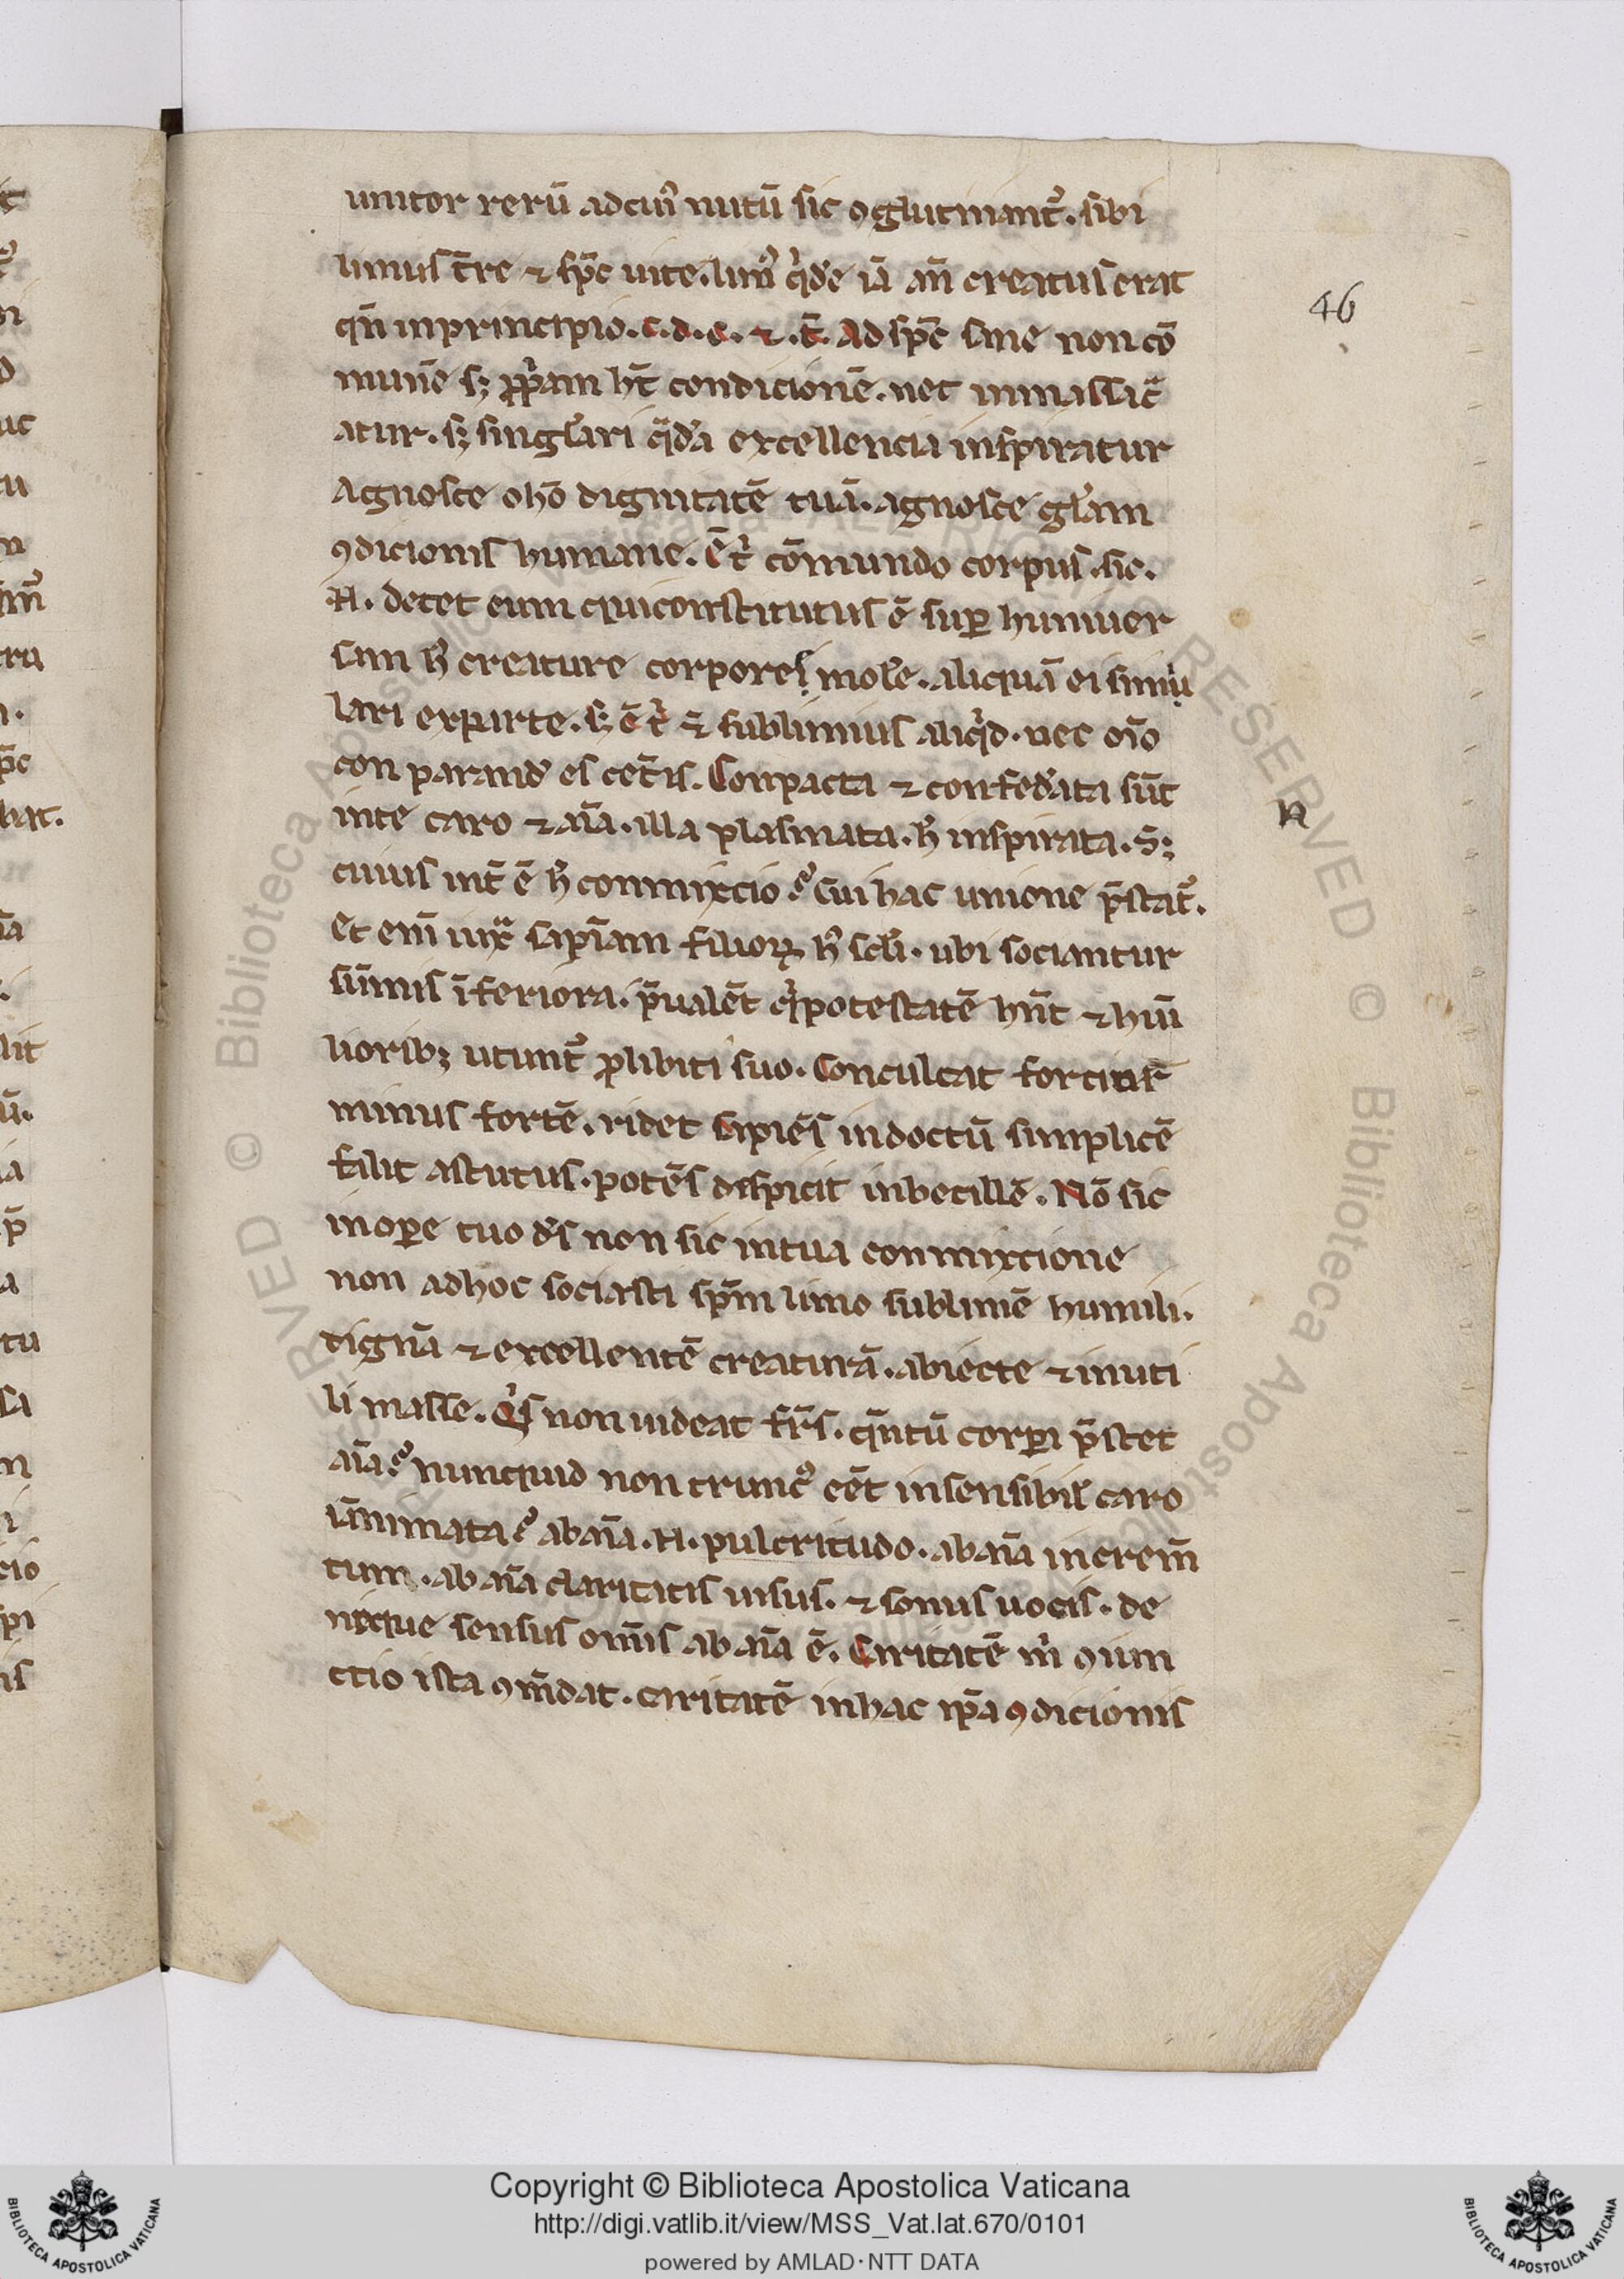 unitor rerū ad cui᷒ nutū sic ꝯglutinant᷑. sibi
limus t̄re ⁊ sp̄c uite. lim᷒ qͥdē iā an̄ creatus erat
46
qn̄ in principio. c. d. c. ⁊ .t̄. Ad sp̄c sine non cō
munē sꝫ pp̄am hꝫ condicionē. nec in massa c̄
atur. sꝫ singl̄ari qͣdā excellencia inspiratur
Agnosce o hō dignitatē tuā. agnosce gl̄am
ꝯdicionis humane. Ē t cō mundo corpus. sic.
.N. decet eum qui constitutus ē suꝑ huniuer
sam h̄ creature corporeṣ mole. aliquā ei simu
lari ex parte. Sꝫ ē t ⁊ sublimius aliqͥd. nec oīo
con parand̄ es cet̄is. Conpacta ⁊ confed̄ata sūt
N
in te caro ⁊ aīa. illa plasmata. h̄ inspirata. Sꝫ
cuius int̄ ē h̄ conmixcio? cui hac unione p̄stat᷑.
Et enī iuxͣ sapīam filioꝝ h᷒ scl̄i. ubi sociantur
sūmis īferiora. p̄ualēt qͥ potestatē hn̄t ⁊ hūi
liorib; utunt᷑ ꝓ libiti suo. Conculcat forcior
minus fortē. ridet sapiēs indoctū simplicē
fallit astutus. potēs despicit inbecillē. Nō sic
in oꝑe tuo ds̄ non sic in tua conmixcione
non ad hoc sociasti sp̄m limo sublimē humili.
dignā ⁊ excellentē creaturā. abiecte ⁊ inuti
li masse. Qͥs non uideat fr̄s. qn̄tū corꝑi p̄stet
aīa? nunquid non trunc᷒ eēt insensibil̄ caro
īanimata? ab aīa .N. pulcritudo. ab aīa increm̄
tum. ab aīa claritatis uisus. ⁊ sonus uocis. de
nique sensus om̄is ab aīa ē. Caritatē m ꝯiun
ctio ista ꝯm̄dat. caritatē in hac ip̄a ꝯdicionis
Copyright © Biblioteca Apostolica Vaticana
http://digi.vatlib.it/view/MSS_Vat.lat.670/0101
powered by AMLAD·NTT DATA